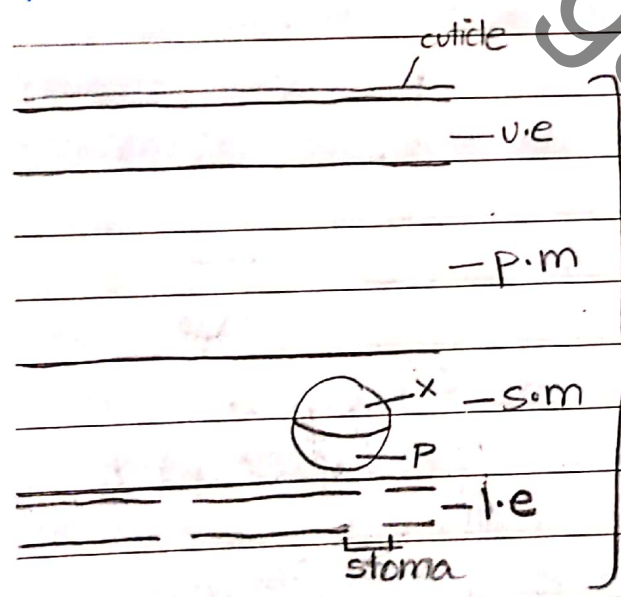 cuticle
u.e
p.m
x
s.m
p
l.e
stoma